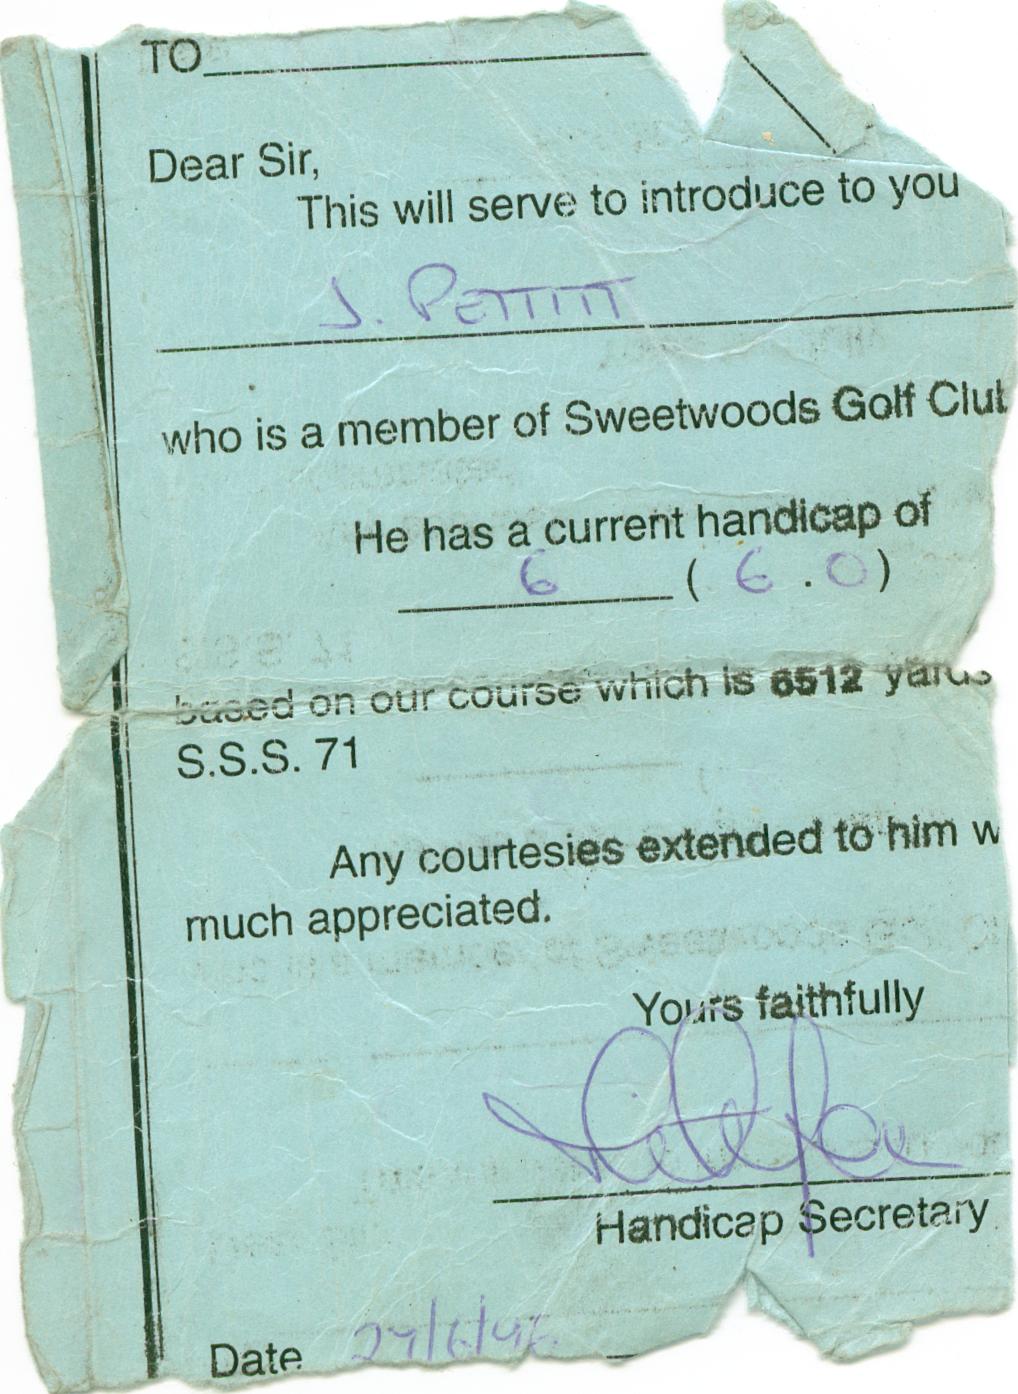 TO
Dear Sir,
This will serve to introduce to you
J. PETTITT
who is a member of Sweetwoods Golf Club
He has a current handicap of
6 ( 6 . 0 )
based on our course which is 6512 yards
S.S.S. 71
Any courtesies extended to him w
much appreciated.
Yours faithfully
Handicap Secretary
Date 29/6/96